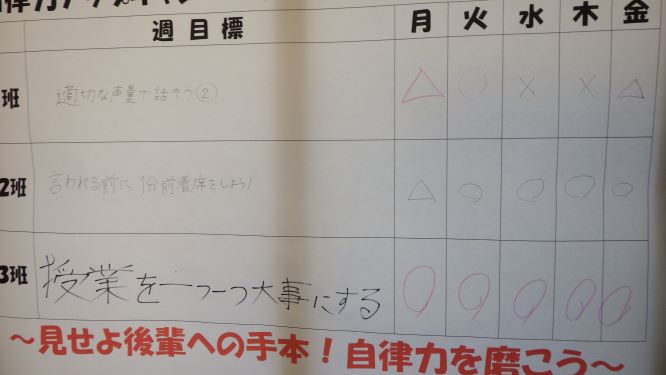 自律力アップキャン
週目標 月 火 水 木 金
班 適切な声量で話そう② △ ○ × × △
2班 言われる前に1分前着席をしよう! △ ○ ○ ○ ○
3班 授業を一つ一つ大事にする ○ ○ ○ ○ ○
～見せよ後輩への手本！自律力を磨こう～